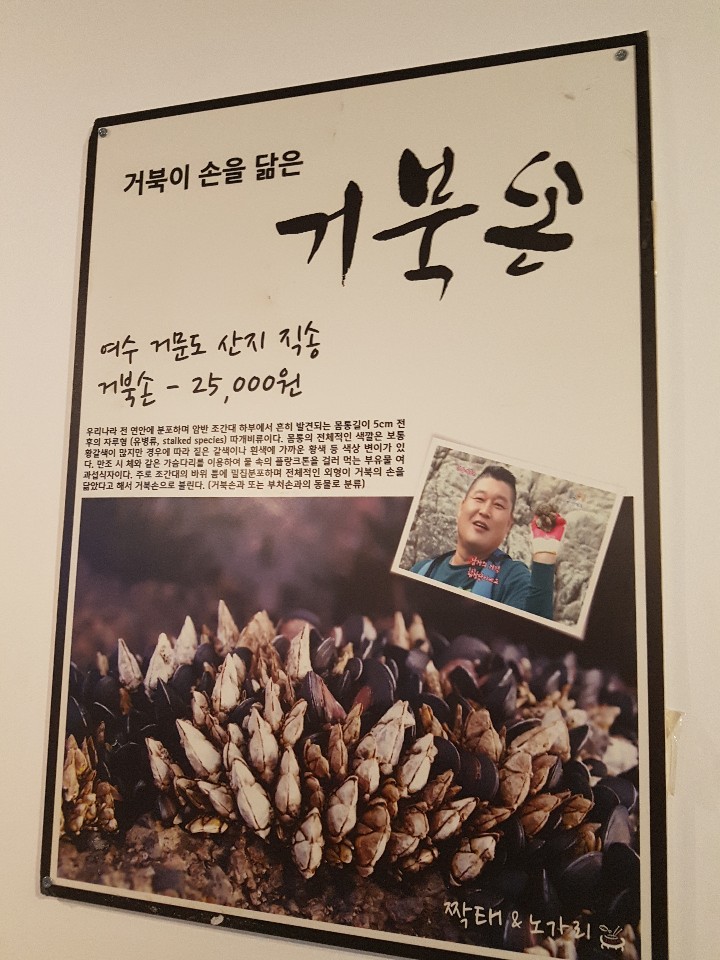 거북이 손을 닮은
거북손
여수 거문도 산지 직송
거북손 - 25,000원
우리나라 전 연안에 분포하며 암반 조간대 하부에서 흔히 발견되는 몸통길이 5cm 전
후의 자루형 (유병류, stalked species) 따개비류이다. 몸통의 전체적인 색깔은 보통
황갈색이 많지만 경우에 따라 짙은 갈색이나 흰색에 가까운 황색 등 색상 변이가 있
다. 만조 시 체와 같은 가슴다리를 이용하여 물 속의 플랑크톤을 걸러 먹는 부유물 여
과섭식자이다. 주로 조간대의 바위 틈에 밀집분포하며 전체적인 외형이 거북의 손을
닮았다고 해서 거북손으로 불린다. (거북손과 또는 부처손과의 동물로 분류)
짝태 & 노가리